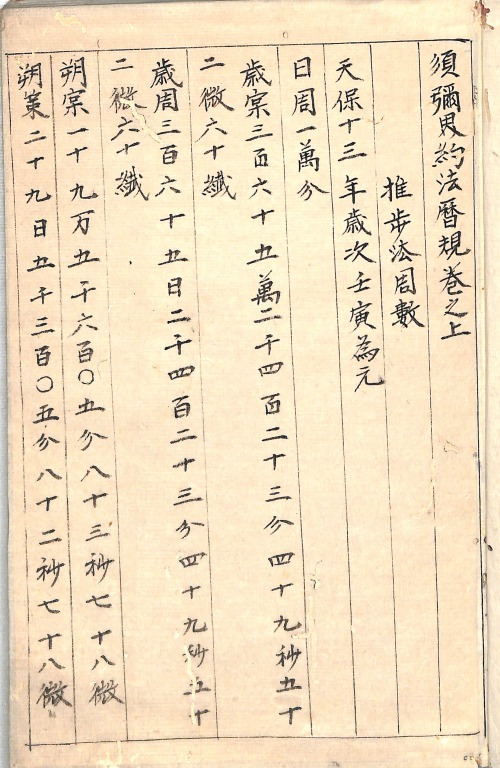 須彌界約法暦規巻之上
推歩法周數
天保十三年歳次壬寅為元
日周一萬分
歳宲三百六十五萬二千四百二十三分四十九秒五十
二微六十纖
歳周三百六十五日二千四百二十三分四十九秒五十
二微六十纖
朔宲一十九万五千六百〇五分八十三秒七十八微
朔策二十九日五千三百〇五分八十二秒七十八微